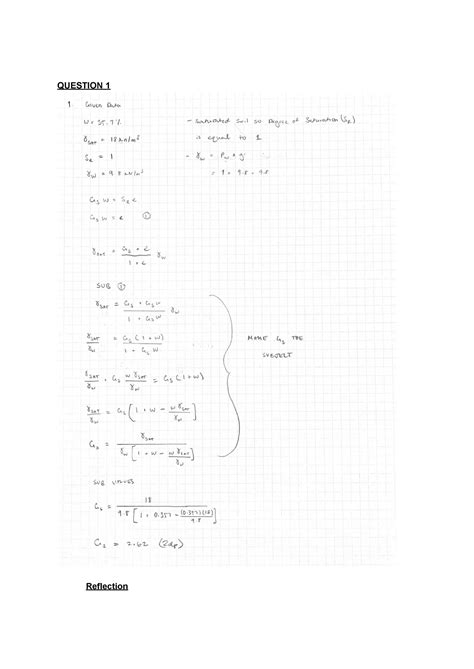 QUESTION 1
1. Given Data
W = 35.7%
- Saturated Soil so Degree of Saturation (SR)
γSAT = 18 kN/m³
is equal to 1
SR = 1
- γw = ρw × g
γw = 9.8 kN/m³
= 1 × 9.8 = 9.8
Gs w = SR e
Gs w = e ①
γSAT = Gs + e / 1 + e γw
SUB ①
γSAT = Gs + Gs w / 1 + Gs w γw
γSAT / γw = Gs (1 + w) / 1 + Gs w
MAKE Gs THE
SUBJECT
γSAT / γw + Gs w γSAT / γw = Gs (1 + w)
γSAT / γw = Gs [1 + w - w γSAT / γw]
Gs = γSAT / γw [1 + w - w γSAT / γw]
SUB VALUES
Gs = 18 / 9.8 [1 + 0.357 - (0.357)(18) / 9.8]
Gs = 2.62 (2dp)
Reflection